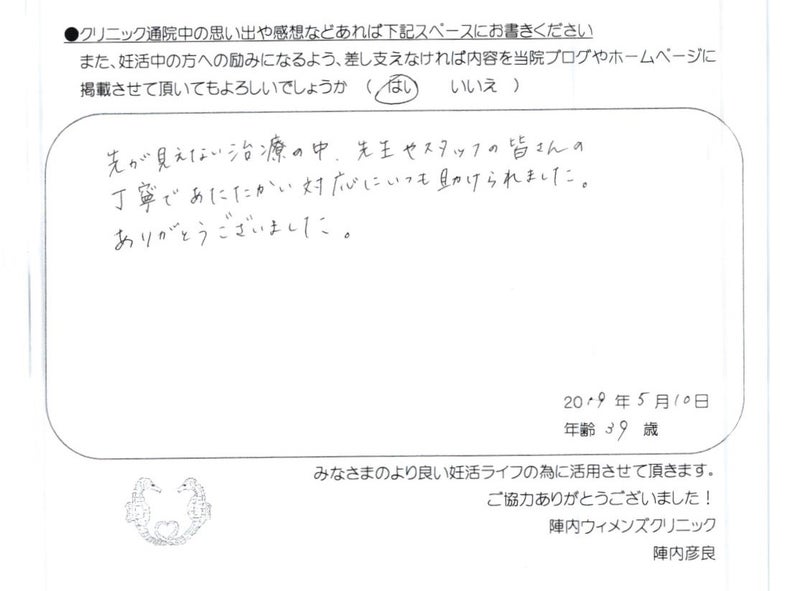 ●クリニック通院中の思い出や感想などあれば下記スペースにお書きください
また、妊活中の方への励みになるよう、差し支えなければ内容を当院ブログやホームページに
掲載させて頂いてもよろしいでしょうか ( はい いいえ )
先が見えない治療の中、先生やスタッフの皆さんの
丁寧であたたかい対応にいつも助けられました。
ありがとうございました。
2019年5月10日
年齢 39 歳
みなさまのより良い妊活ライフの為に活用させて頂きます。
ご協力ありがとうございました！
陣内ウィメンズクリニック
陣内彦良